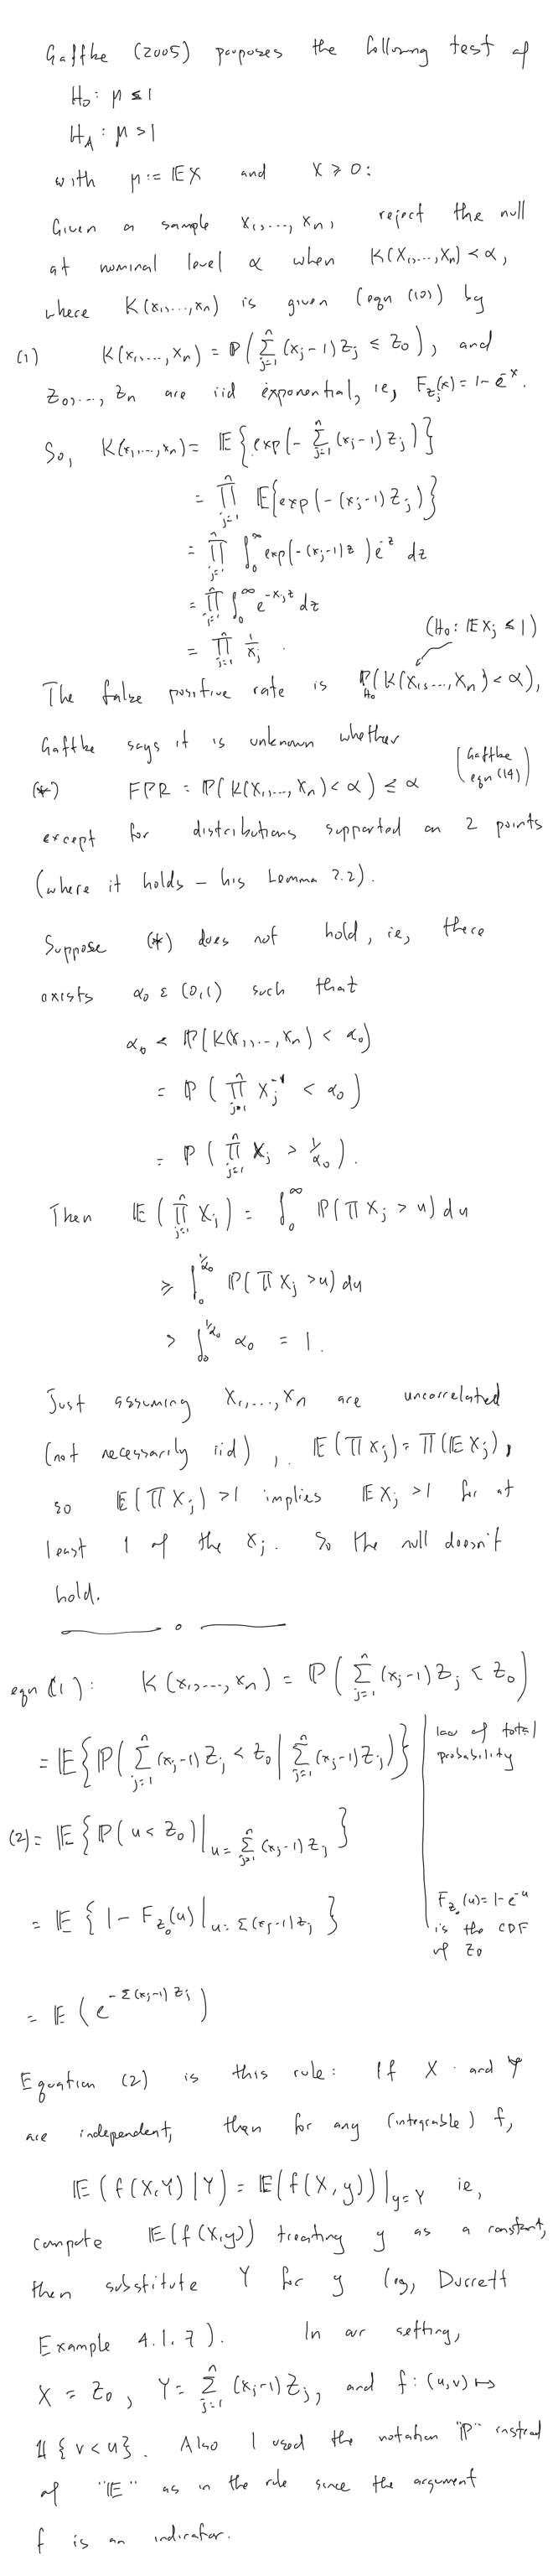 Gaffke (2005) proposes the following test of
H₀: μ ≤ 1
H_A: μ > 1
with μ := 𝔼X and X ≥ 0:
Given a sample x₁,..., xₙ, reject the null
at nominal level α when K(X₁,...,Xₙ) < α,
where K(x₁,...,xₙ) is given (eqn (10)) by
(1) K(x₁,...,xₙ) = ℙ(∑_{j=1}^n (x_j-1)Z_j ≤ Z₀), and
Z₀,..., Zₙ are iid exponential, ie, F_{Z_j}(x) = 1-e^{-x}.
So, K(x₁,...,xₙ) = 𝔼{exp(-∑_{j=1}^n (x_j-1)Z_j)}
= ∏_{j=1}^n 𝔼{exp(-(x_j-1)Z_j)}
= ∏_{j=1}^n ∫_0^∞ exp(-(x_j-1)z)e^{-z} dz
= ∏_{j=1}^n ∫_0^∞ e^{-x_j z} dz
= ∏_{j=1}^n 1/x_j .
(H₀: 𝔼X_j ≤ 1)
The false positive rate is ℙ_{H₀}(K(X₁,...,Xₙ) < α),
Gaffke says it is unknown whether
(*) FPR = ℙ(K(X₁,...,Xₙ) < α) ≤ α (Gaffke eqn (14))
except for distributions supported on 2 points
(where it holds – his Lemma 2.2).
Suppose (*) does not hold, ie, there
exists α₀ ε (0,1) such that
α₀ < ℙ(K(X₁,..., Xₙ) < α₀)
= ℙ(∏_{j=1}^n X_j^{-1} < α₀)
= ℙ(∏_{j=1}^n X_j > 1/α₀).
Then 𝔼(∏_{j=1}^n X_j) = ∫_0^∞ ℙ(∏ X_j > u) du
≥ ∫_0^{1/α₀} ℙ(∏ X_j > u) du
> ∫_0^{1/α₀} α₀ = 1.
Just assuming X₁,..., Xₙ are uncorrelated
(not necessarily iid), 𝔼(∏X_j) = ∏(𝔼X_j),
so 𝔼(∏X_j) > 1 implies 𝔼X_j > 1 for at
least 1 of the X_j. So the null doesn't
hold.
eqn (1): K(x₁,...,xₙ) = ℙ(∑_{j=1}^n (x_j-1)Z_j < Z₀)
= 𝔼{ℙ(∑_{j=1}^n (x_j-1)Z_j < Z₀ | ∑_{j=1}^n (x_j-1)Z_j)}
law of total
probability
(2) = 𝔼{ℙ(u < Z₀)|_{u = ∑_{j=1}^n (x_j-1)Z_j}}
= 𝔼{1 - F_{Z₀}(u)|_{u = ∑(x_j-1)Z_j}}
F_{Z₀}(u) = 1-e^{-u}
is the CDF
of Z₀
= 𝔼(e^{-∑(x_j-1)Z_j})
Equation (2) is this rule: If X and Y
are independent, then for any (integrable) f,
𝔼(f(X,Y)|Y) = 𝔼(f(X,y))|_{y=Y} ie,
compute 𝔼(f(X,y)) treating y as a constant,
then substitute Y for y (eg, Durrett
Example 4.1.7). In our setting,
X = Z₀, Y = ∑_{j=1}^n (x_j-1)Z_j, and f: (u,v) ↦
𝟙{v < u}. Also I used the notation "ℙ" instead
of "𝔼" as in the rule since the argument
f is an indicator.